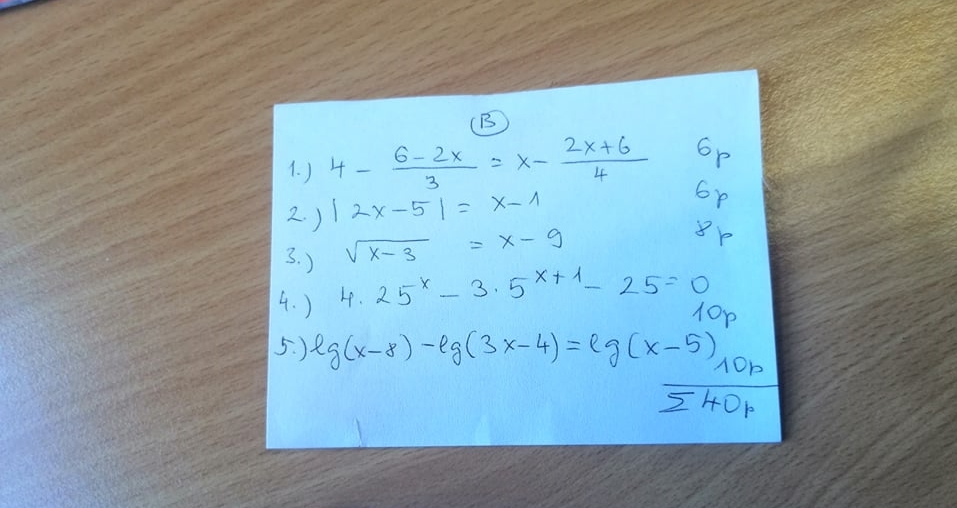 B
1.) 4 - \frac{6-2x}{3} = x - \frac{2x+6}{4} 6p
2.) |2x-5| = x-1 6p
3.) \sqrt{x-3} = x-9 8p
4.) 4·25^x - 3·5^{x+1} - 25 = 0 10p
5.) lg(x-8) - lg(3x-4) = lg(x-5) 10p
Σ 40p